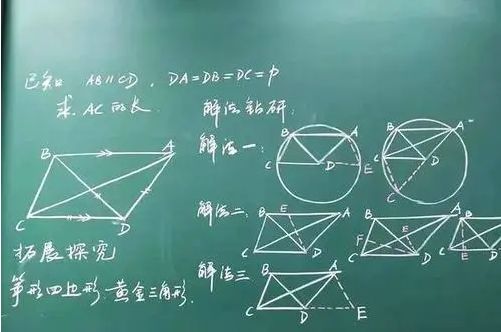 已知 AB∥CD, DA=DB=DC=p
求 AC 的长.
解法钻研:
解法一:
B A C D E
B A C D C
B A C D
解法二:
B E A C D
B A F E C D
B A C E
拓展探究
筝形四边形.黄金三角形.
解法三
B A C D E